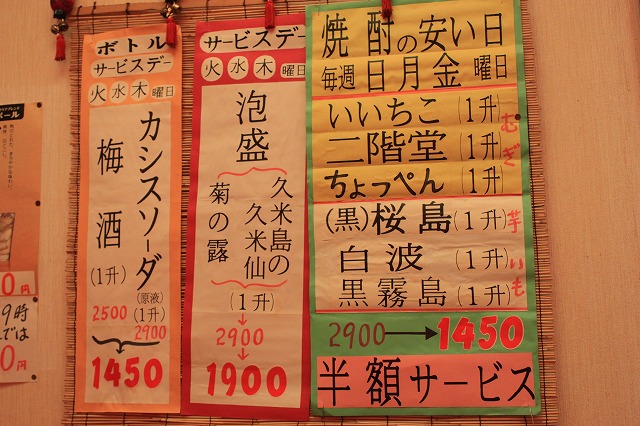 ボトル
サービスデー
火水木曜日
カシスソーダ
(原液)
(1升)
2900
梅酒
(1升)
2500
1450
サービスデー
火水木曜日
泡盛
久米島の
久米仙
菊の露
(1升)
2900
1900
焼酎の安い日
毎週日月金曜日
いいちこ(1升)
二階堂(1升)
ちょっぺん(1升)
むぎ
(黒)桜島(1升)
白波(1升)
黒霧島(1升)
芋いも
2900→1450
半額サービス
ール
0円
9時
では
0円